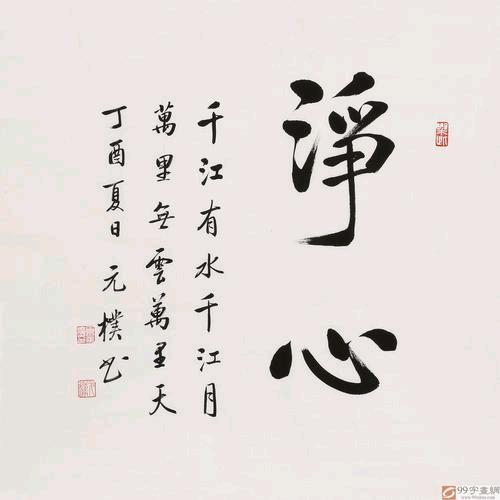 淨心
千江有水千江月
萬里無雲萬里天
丁酉夏日元樸书
99字畫網